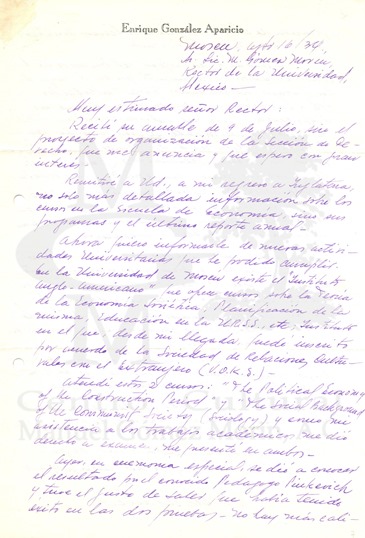 Enrique González Aparicio
Moscú, agto 16/34.
Sr. Lic. M. Gómez Morin,
Rector de la Universidad,
México.-
Muy estimado señor Rector:
Recibí su amable de 9 de Julio, sin el
proyecto de organización de la Sección de De-
recho, que me anuncia y que espero con gran
interés.-
Remitiré a Ud., a mi regreso a Inglaterra,
no sólo más detallada información sobre los
cursos en la Escuela de economía sino sus
programas y el último reporte anual.-
Ahora quiero informarle de nuevas activi-
dades Universitarias que he podido cumplir.
en la Universidad de Moscú existe el "Instituto
Anglo-Americano" que ofrece cursos sobre la Teoría
de la Economía Soviética, Planificación de la
misma, Educación en la U.R.S.S. etc. Instituto
en el que, desde mi llegada, quedé inscrito
por acuerdo de la Sociedad de Relaciones Cultu-
rales con el Extranjero (V.O.K.S.).-
Atendí estos 2 cursos: "The Political Economy
of the Construction Period" y "The Social Background
of the Communist Society (Sociology)" y como mi
asistencia a los trabajos académicos me dió
derecho a examen, me presenté en ambos.-
Ayer, en ceremonia especial, se dió a conocer
el resultado por el conocido Pedagogo Pinkevich
y tuve el gusto de saber que había tenido
éxito en las dos pruebas.- no hay más cali-